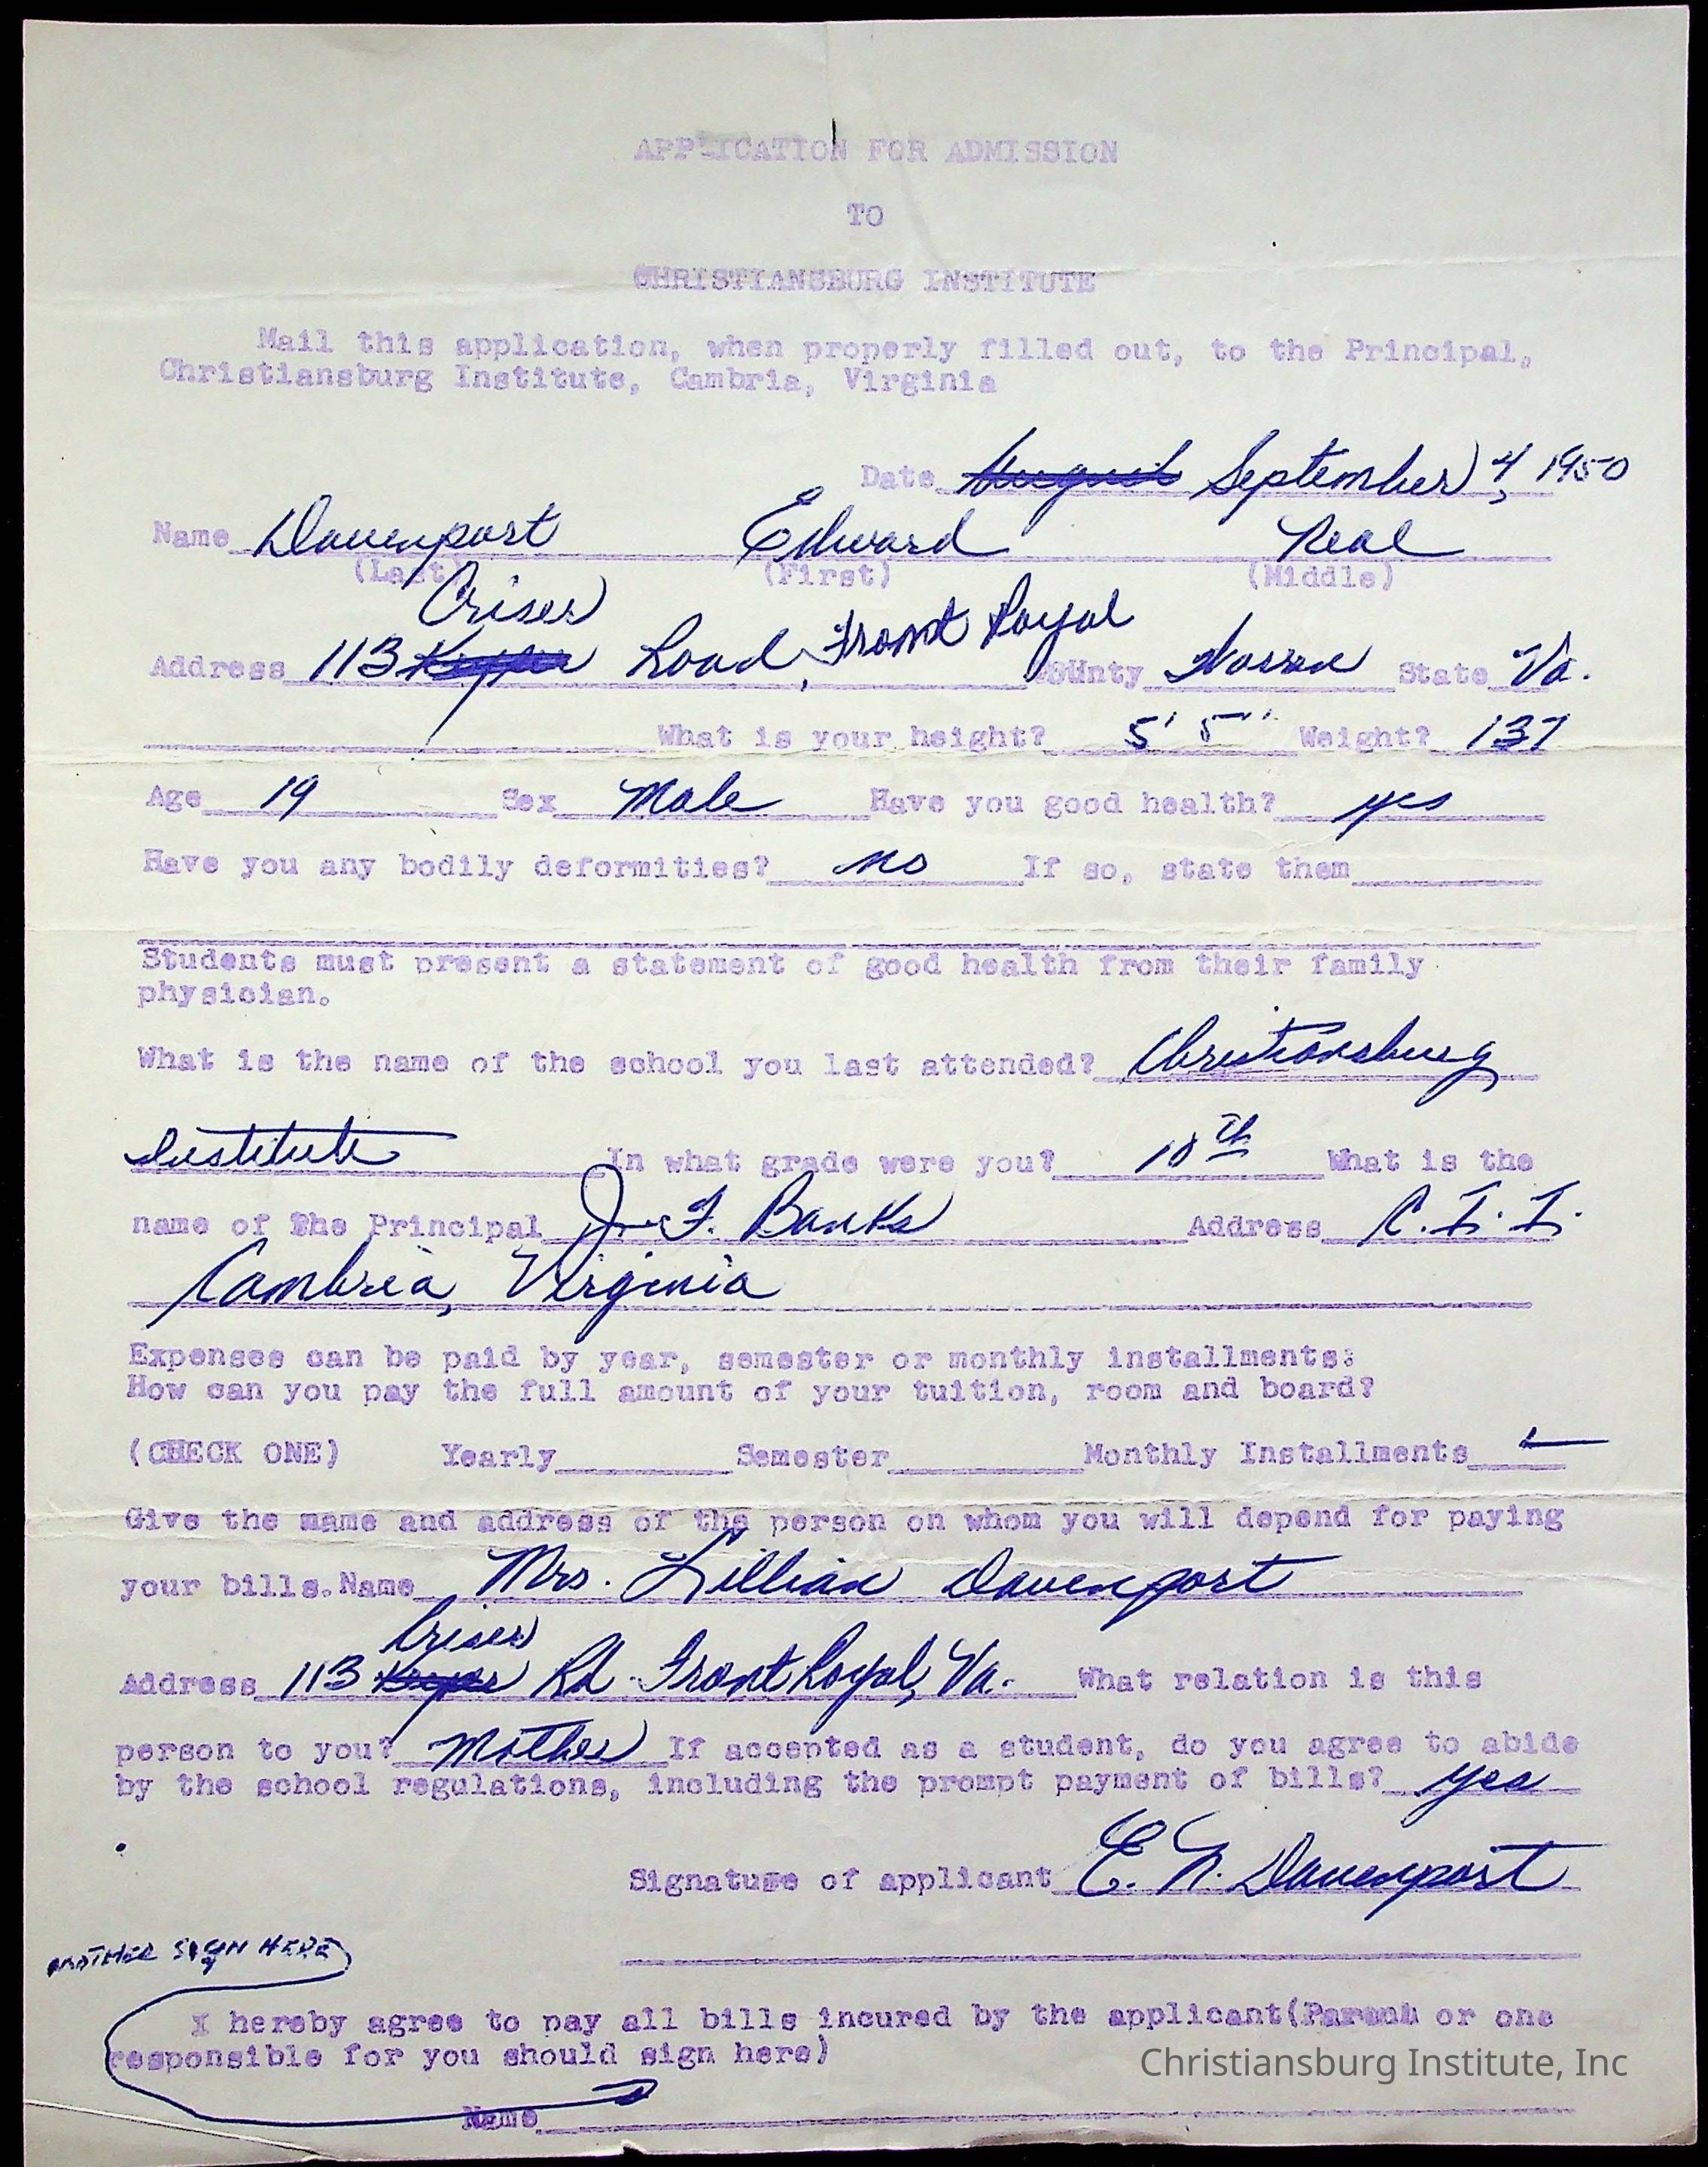 APPLICATION FOR ADMISSION
TO
CHRISTIANSBURG INSTITUTE
Mail this application, when properly filled out, to the Principal,
Christiansburg Institute, Cambria, Virginia
Date August September 4, 1950
Name Davenport Edward Neal
(Last) (First) (Middle)
Criser
Address 113 Road, Front Royal County Warren State Va.
What is your height? 5' 5" Weight? 137
Age 19 Sex Male Have you good health? yes
Have you any bodily deformities? no If so, state them
Students must present a statement of good health from their family
physician.
What is the name of the school you last attended? Christiansburg
Institute In what grade were you? 10th What is the
name of the Principal J. F. Banks Address C. I. I.
Cambria, Virginia
Expenses can be paid by year, semester or monthly installments:
How can you pay the full amount of your tuition, room and board?
(CHECK ONE) Yearly Semester Monthly Installments ✓
Give the name and address of the person on whom you will depend for paying
your bills. Name Mrs. Lillian Davenport
Criser
Address 113 Rd. Front Royal, Va. What relation is this
person to you? Mother If accepted as a student, do you agree to abide
by the school regulations, including the prompt payment of bills? yes
Signature of applicant E. N. Davenport
MOTHER SIGN HERE
I hereby agree to pay all bills incured by the applicant(Parent or one
responsible for you should sign here)
Christiansburg Institute, Inc
Name